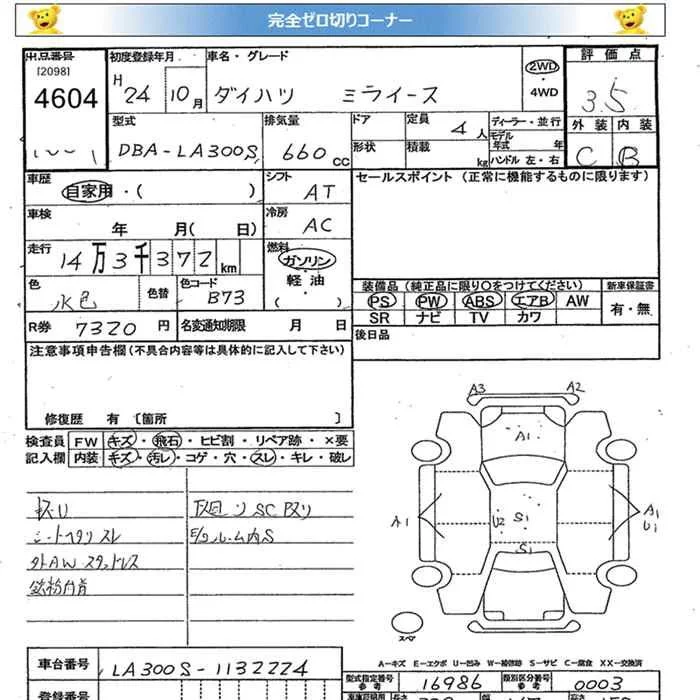 完全ゼロ切りコーナー
出品番号 初度登録年月 車名・グレード 評価点
[2098]
4604
H24 10月 ダイハツ ミライース 2WD・4WD 3.5
型式 排気量 ドア 定員 ディーラー・並行 外装 内装
DBA-LA300S 660cc 4人 モデル年式 年 C B
形状 積載 kg ハンドル 左・右
車歴 シフト セールスポイント (正常に機能するものに限ります)
自家用・( ) AT
車検 冷房
年 月( 日) AC
走行 燃料
14万3千372km ガソリン・軽油( )
色 色替 色コード 装備品 (純正品に限り○をつけてください) 新車保証書
水色 B73 PS PW ABS エアB AW 有・無
SR ナビ TV カワ
R券 7320円 名変通知期限 月 日
後日品
注意事項申告欄(不具合内容等は具体的に記入して下さい)
修復歴 有 〔箇所 〕
検査員 FW キズ・飛石・ヒビ割・リペア跡・×要
記入欄 内装 キズ・汚レ・コゲ・穴・スレ・キレ・破レ
下廻りSC反り
シートヘタリスレ
外AWスタッドレス
A3 A2
A1
A1 U2 S1 A1
U1
S1
スペア
A-キズ E-エクボ U-凹み W-補修跡 S-サビ C-腐食 XX-交換済
車台番号 LA300S-1132224
型式指定番号 参考 16986 類別区分番号 参考 0003
登録番号